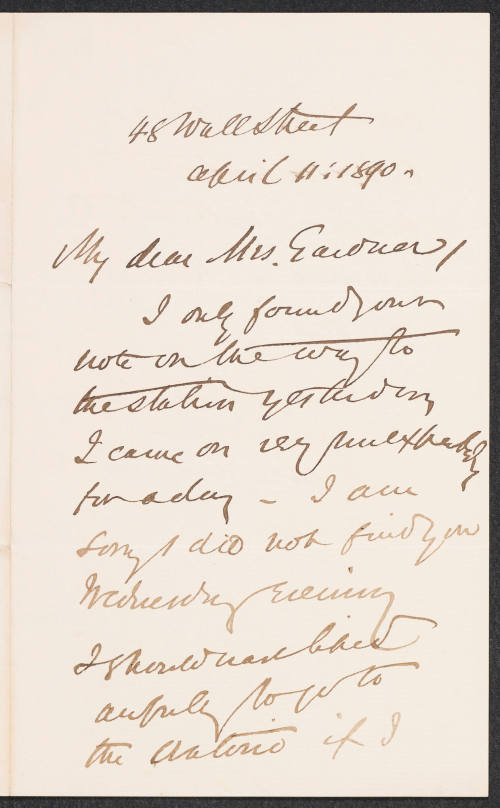 48 Wall Street
April 11: 1890.
My dear Mrs. Gardner,
I only found your
note on the way to
the station yesterday
I came on very unexpectedly
for a day - I am
sorry I did not find you
Wednesday Evening
I should have liked
awfully to go to
the Oratorio if I